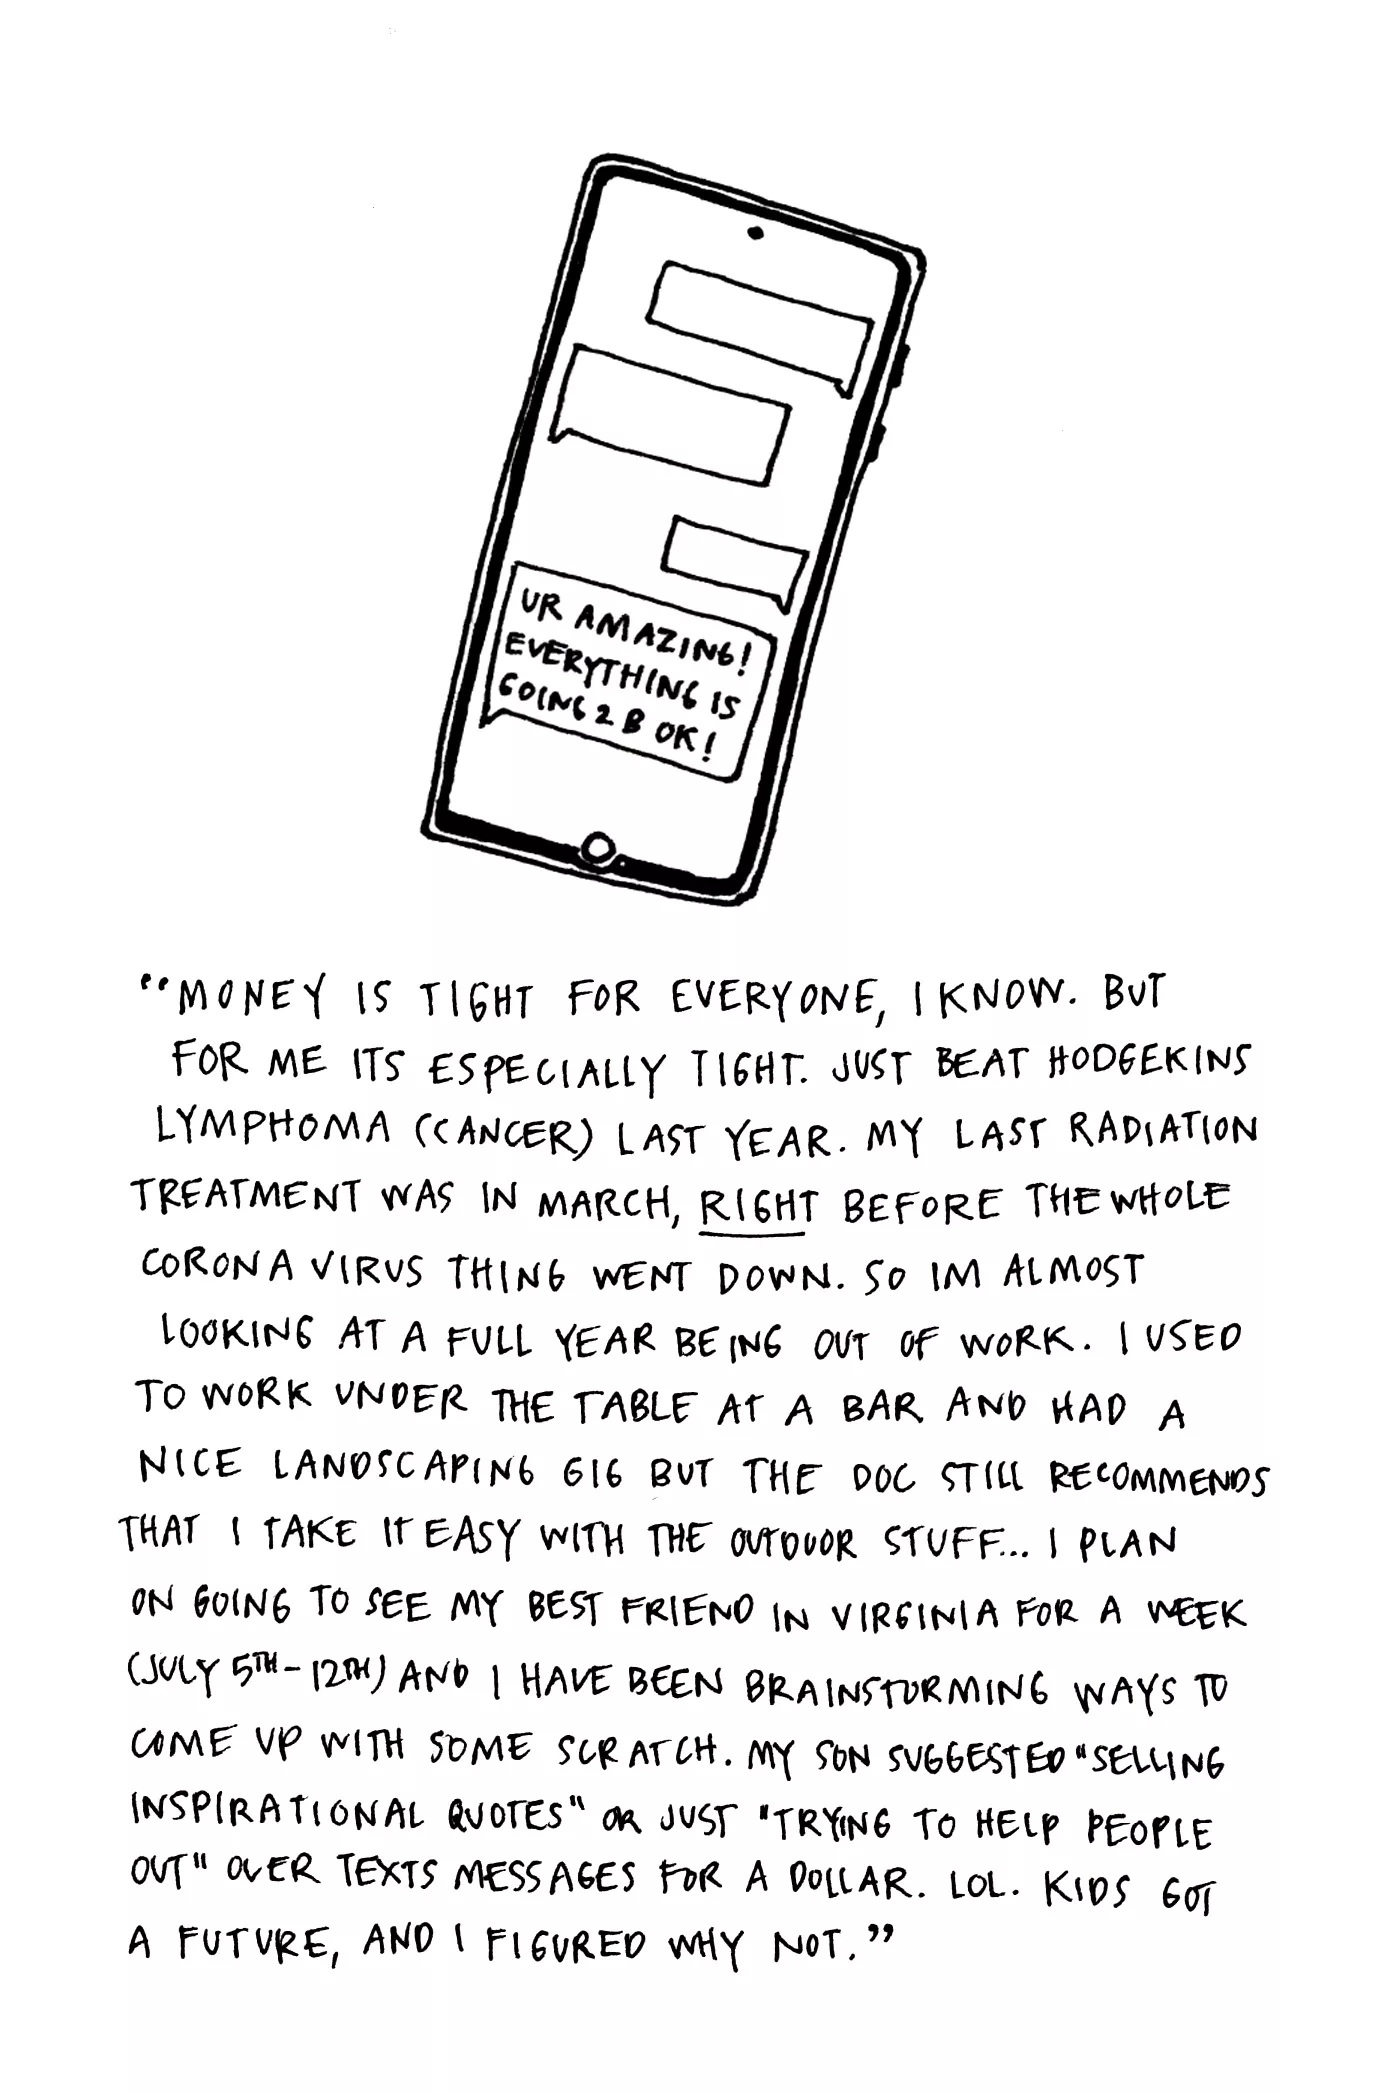 UR AMAZING!
EVERYTHING IS
GOING 2 B OK!
“MONEY IS TIGHT FOR EVERYONE, I KNOW. BUT
FOR ME ITS ESPECIALLY TIGHT. JUST BEAT HODGEKINS
LYMPHOMA (CANCER) LAST YEAR. MY LAST RADIATION
TREATMENT WAS IN MARCH, RIGHT BEFORE THE WHOLE
CORONA VIRUS THING WENT DOWN. SO IM ALMOST
LOOKING AT A FULL YEAR BEING OUT OF WORK. I USED
TO WORK UNDER THE TABLE AT A BAR AND HAD A
NICE LANDSCAPING GIG BUT THE DOC STILL RECOMMENDS
THAT I TAKE IT EASY WITH THE OUTDOOR STUFF... I PLAN
ON GOING TO SEE MY BEST FRIEND IN VIRGINIA FOR A WEEK
(JULY 5TH-12TH) AND I HAVE BEEN BRAINSTORMING WAYS TO
COME UP WITH SOME SCRATCH. MY SON SUGGESTED "SELLING
INSPIRATIONAL QUOTES" OR JUST "TRYING TO HELP PEOPLE
OUT" OVER TEXTS MESSAGES FOR A DOLLAR. LOL. KIDS GOT
A FUTURE, AND I FIGURED WHY NOT.”